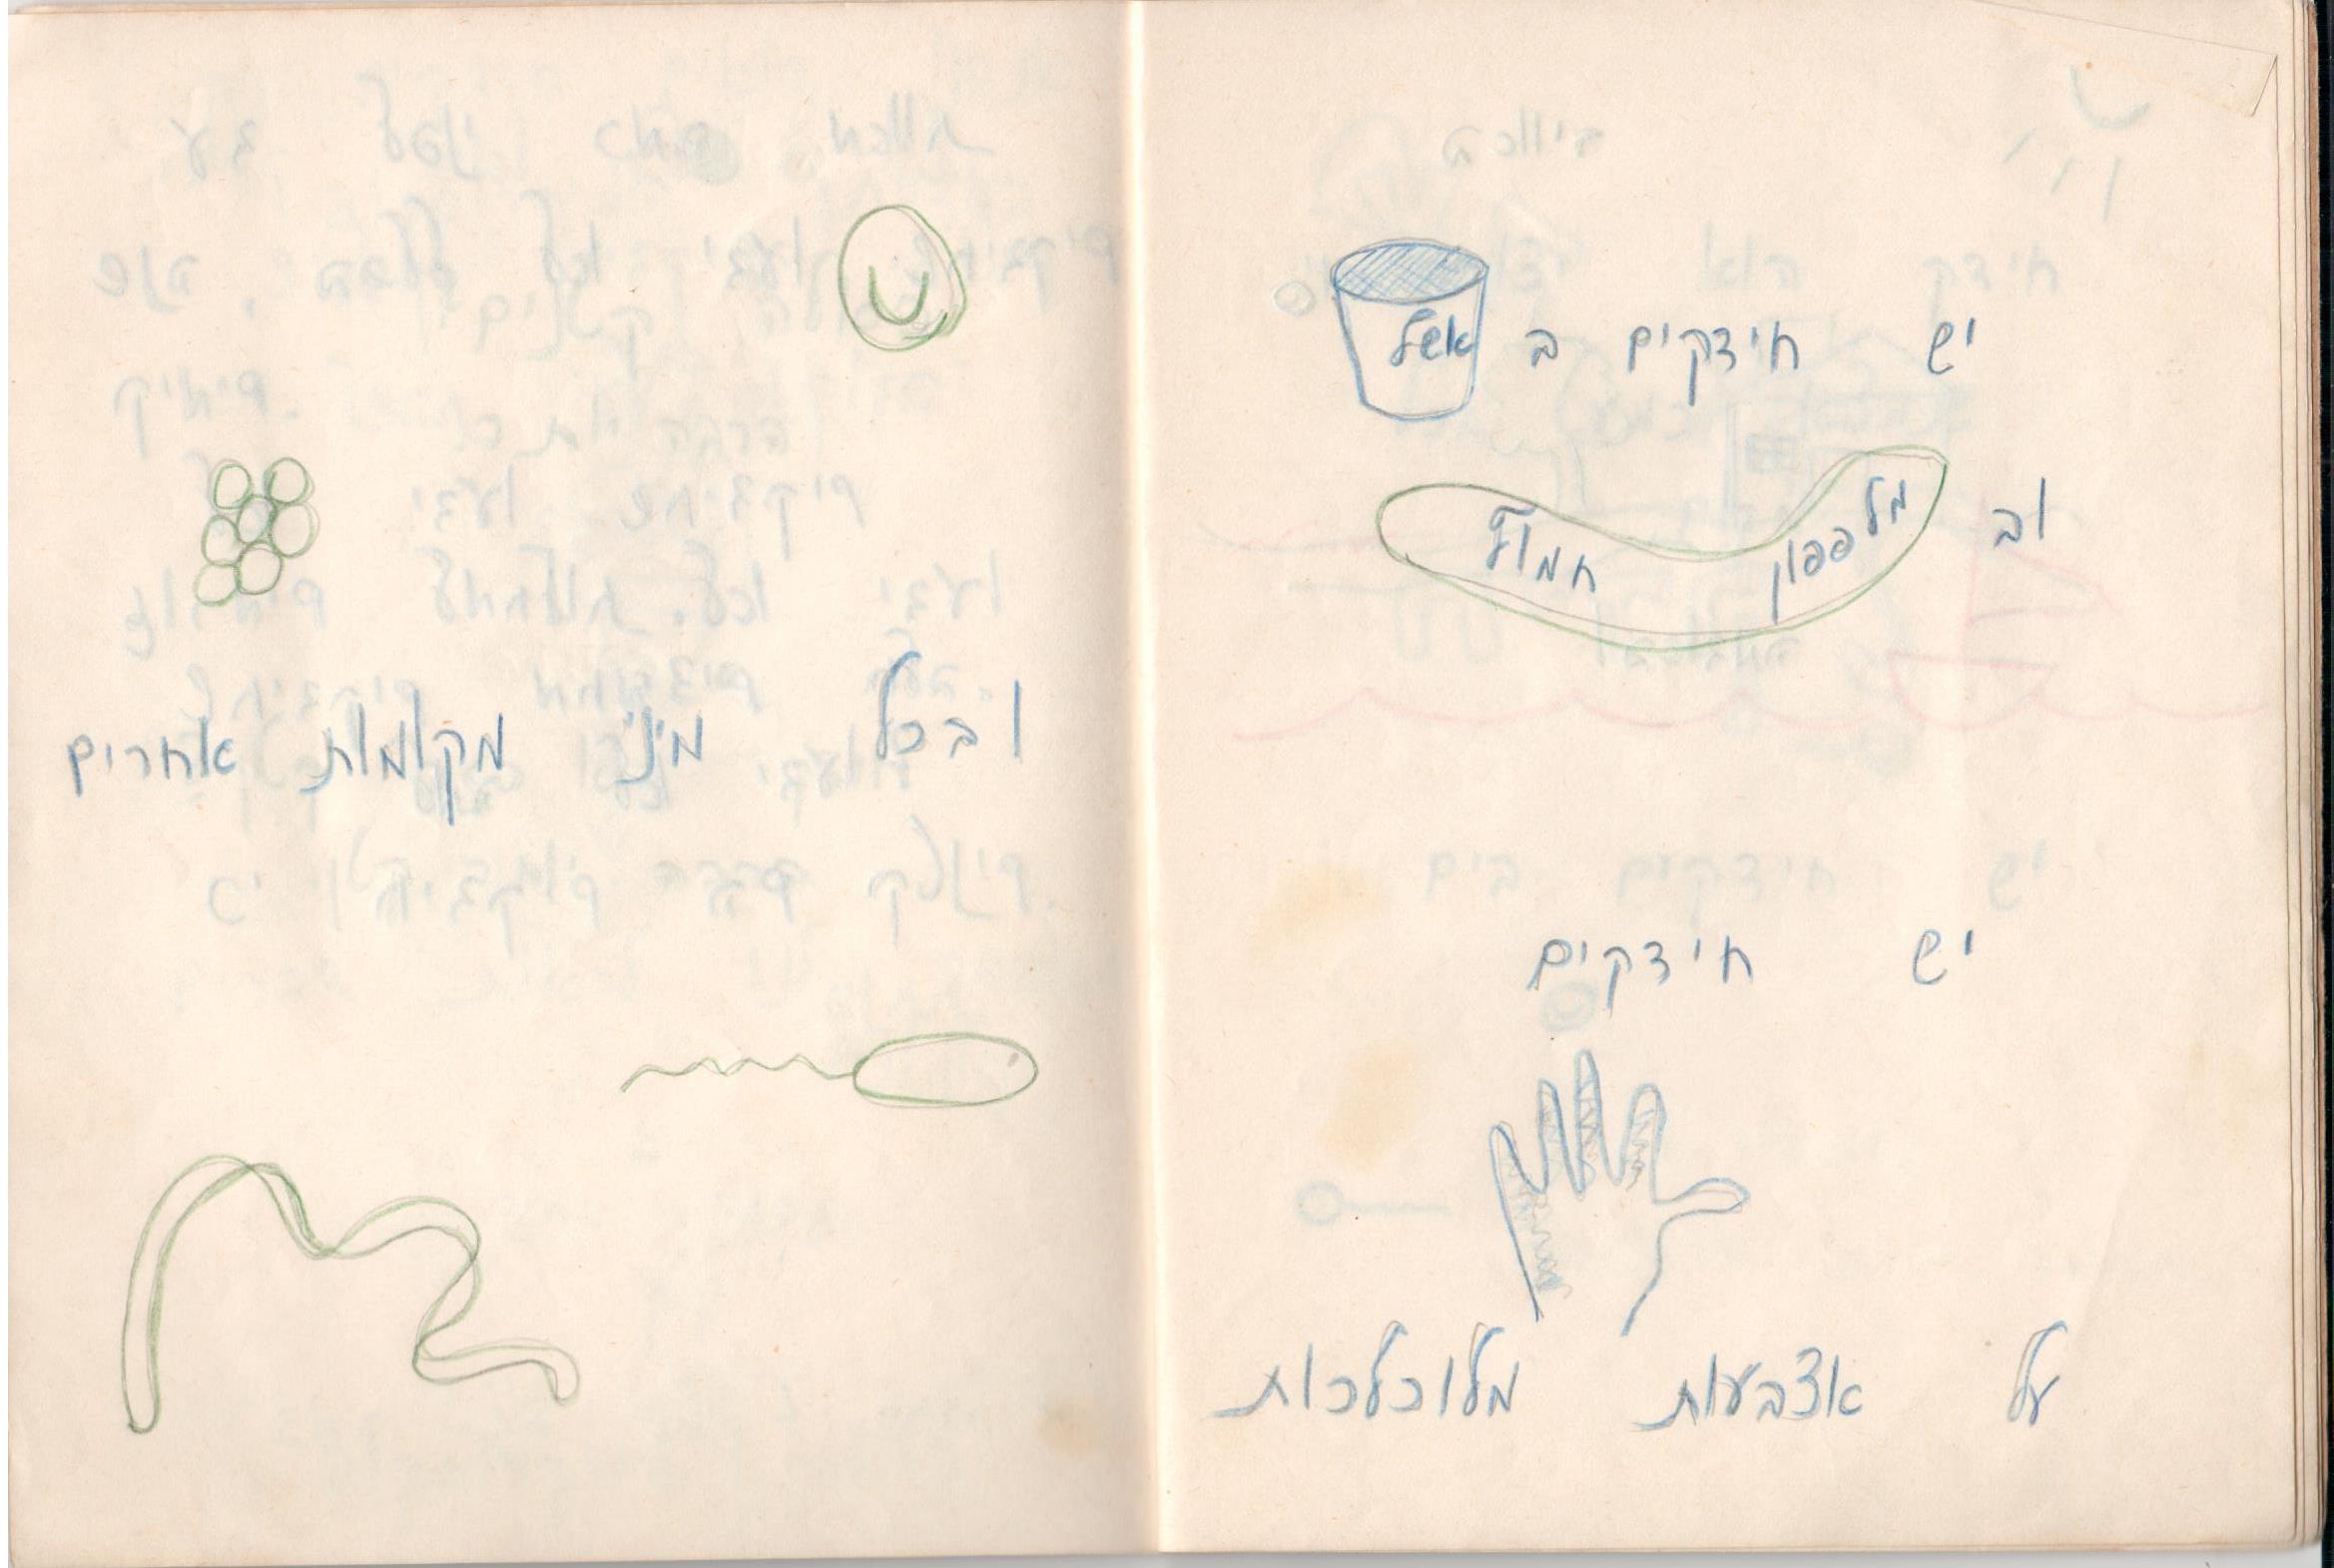 יש חידקים ב אשל
וב מלפפון חמוץ
יש חידקים
על אצבעות מלוכלכות
ובכל מיני מקומות אחרים